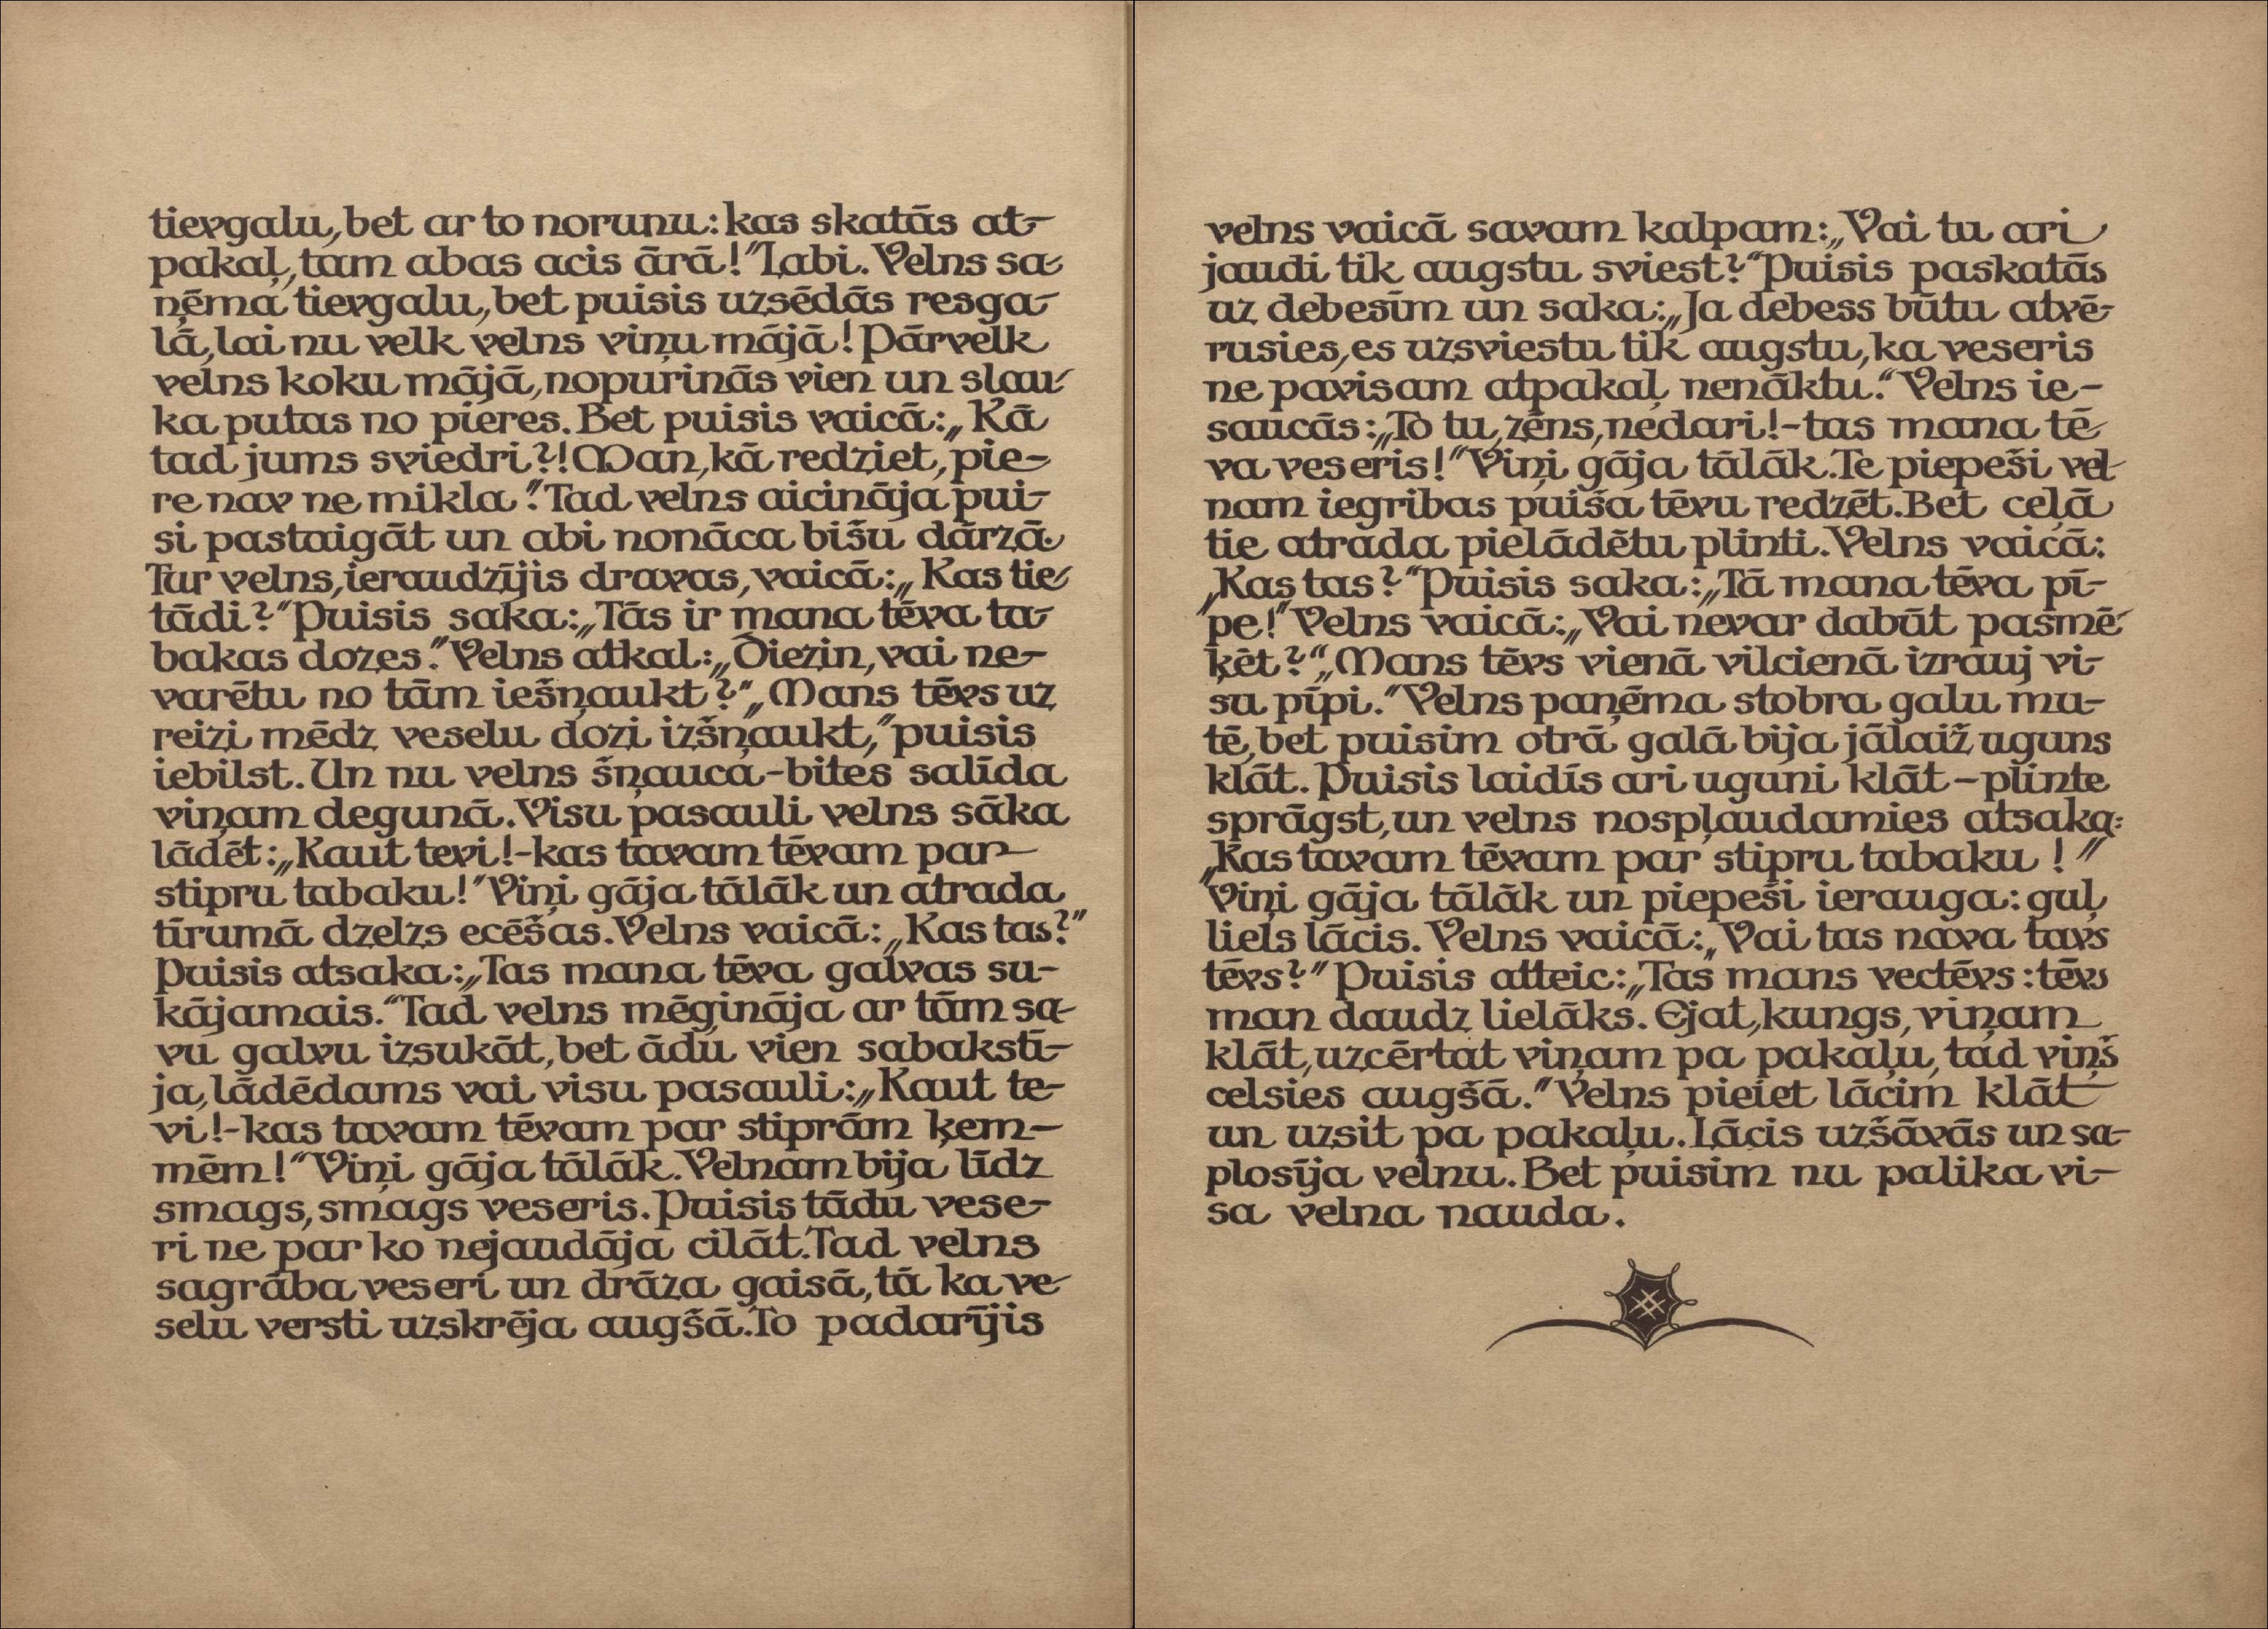 tievgalu, bet ar to norunu: kas skatās at-
pakaļ, tam abas acis ārā!" Labi. Velns sa-
ņēma tievgalu, bet puisis uzsēdās resga-
lā, lai nu velk velns viņu mājā! Pārvelk
velns koku mājā, nopurinās vien un slau-
ka putas no pieres. Bet puisis vaicā: „Kā
tad jums sviedri?! Man, kā redziet, pie-
re nav ne mikla." Tad velns aicināja pui-
si pastaigāt un abi nonāca bišu dārzā.
Tur velns, ieraudzījis dravas, vaicā: „Kas tie
tādi?" Puisis saka: „Tās ir mana tēva ta-
bakas dozes." Velns atkal: „Diezin, vai ne-
varētu no tām iešņaukt?" „Mans tēvs uz
reizi mēdz veselu dozi izšņaukt," puisis
iebilst. Un nu velns šņauca - bites salīda
viņam degunā. Visu pasauli velns sāka
lādēt: „Kaut tevi! - kas tavam tēvam par
stipru tabaku!" Viņi gāja tālāk un atrada
tīrumā dzelzs ecēšas. Velns vaicā: „Kas tas?"
Puisis atsaka: „Tas mana tēva galvas su-
kājamais." Tad velns mēgināja ar tām sa-
vu galvu izsukāt, bet ādu vien sabakstī-
ja, lādēdams vai visu pasauli: „Kaut te-
vi! - kas tavam tēvam par stiprām ķem-
mēm!" Viņi gāja tālāk. Velnam bija līdz
smags, smags veseris. Puisis tādu vese-
ri ne par ko nejaudāja cilāt. Tad velns
sagrāba veseri un drāza gaisā, tā ka ve-
selu versti uzskrēja augšā. To padarījis
velns vaicā savam kalpam: „Vai tu ari
jaudi tik augstu sviest?" Puisis paskatās
uz debesīm un saka: „Ja debess būtu atvē-
rusies, es uzsviestu tik augstu, ka veseris
ne pavisam atpakaļ nenāktu." Velns ie-
saucās: „To tu, zēns, nedari! - tas mana tē-
va veseris!" Viņi gāja tālāk. Te piepeši vel-
nam iegribas puiša tēvu redzēt. Bet ceļā
tie atrada pielādētu plinti. Velns vaicā:
„Kas tas?" Puisis saka: „Tā mana tēva pī-
pe!" Velns vaicā: „Vai nevar dabūt pasmē-
ķēt?" „Mans tēvs vienā vilcienā izrauj vi-
su pīpi." Velns paņēma stobra galu mu-
tē, bet puisim otrā galā bija jālaiž uguns
klāt. Puisis laidīs ari uguni klāt - plinte
sprāgst, un velns nospļaudamies atsaka:
„Kas tavam tēvam par stipru tabaku!"
Viņi gāja tālāk un piepeši ierauga: guļ
liels lācis. Velns vaicā: „Vai tas nava tavs
tēvs?" Puisis atteic: „Tas mans vectēvs: tēvs
man daudz lielāks. Ejat, kungs, viņam
klāt, uzcērtat viņam pa pakaļu, tad viņš
celsies augšā." Velns pieiet lācim klāt
un uzsit pa pakaļu. Lācis uzšāvās un sa-
plosīja velnu. Bet puisim nu palika vi-
sa velna nauda.